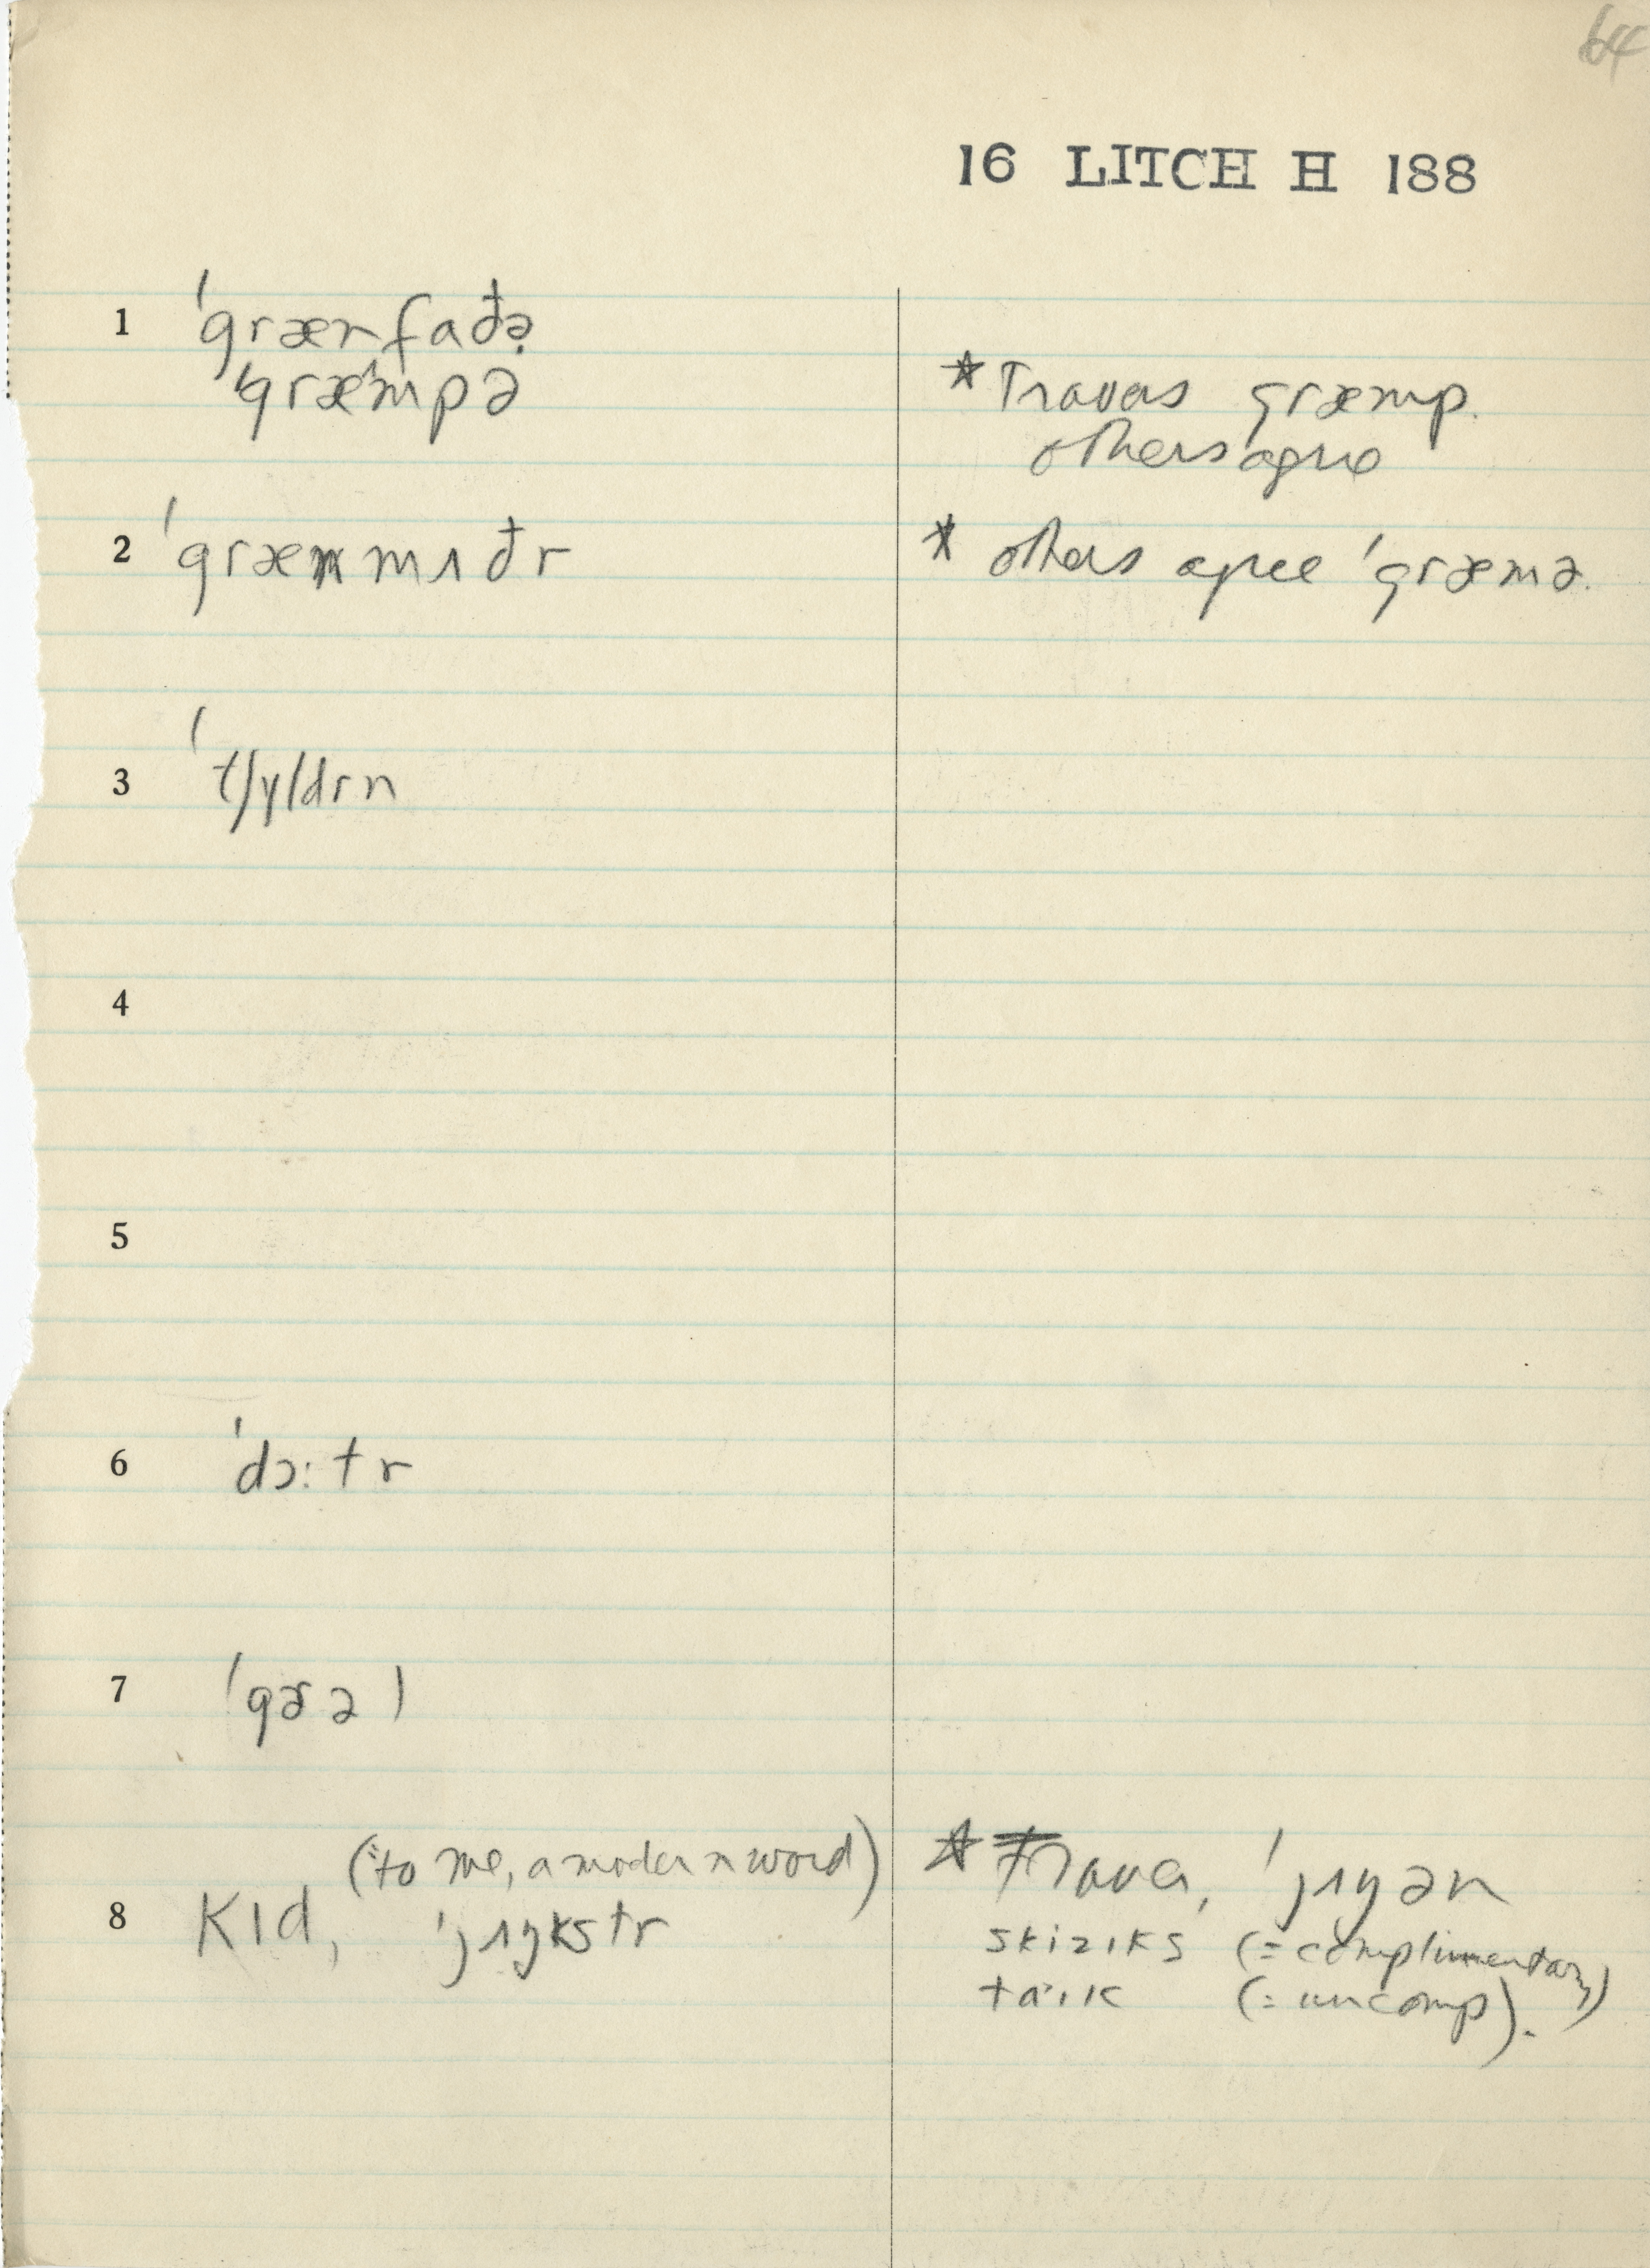 64
16 LITCH H 188
1 ˈgrænfaðə̣
ˈgræmpə
* Travers græmp.
others agree
2 ˈgrænmʌðr
* others agree ˈgræmə.
3 ˈtʃyldrn
4
5
6 ˈdɔ:tr
7 ˈgɚəl
(to me, a modern word)
8 kɪd, ˈjʌŋkstr
* Traver, ˈjʌŋən
skiziks (= complimentary)
(= uncomp).